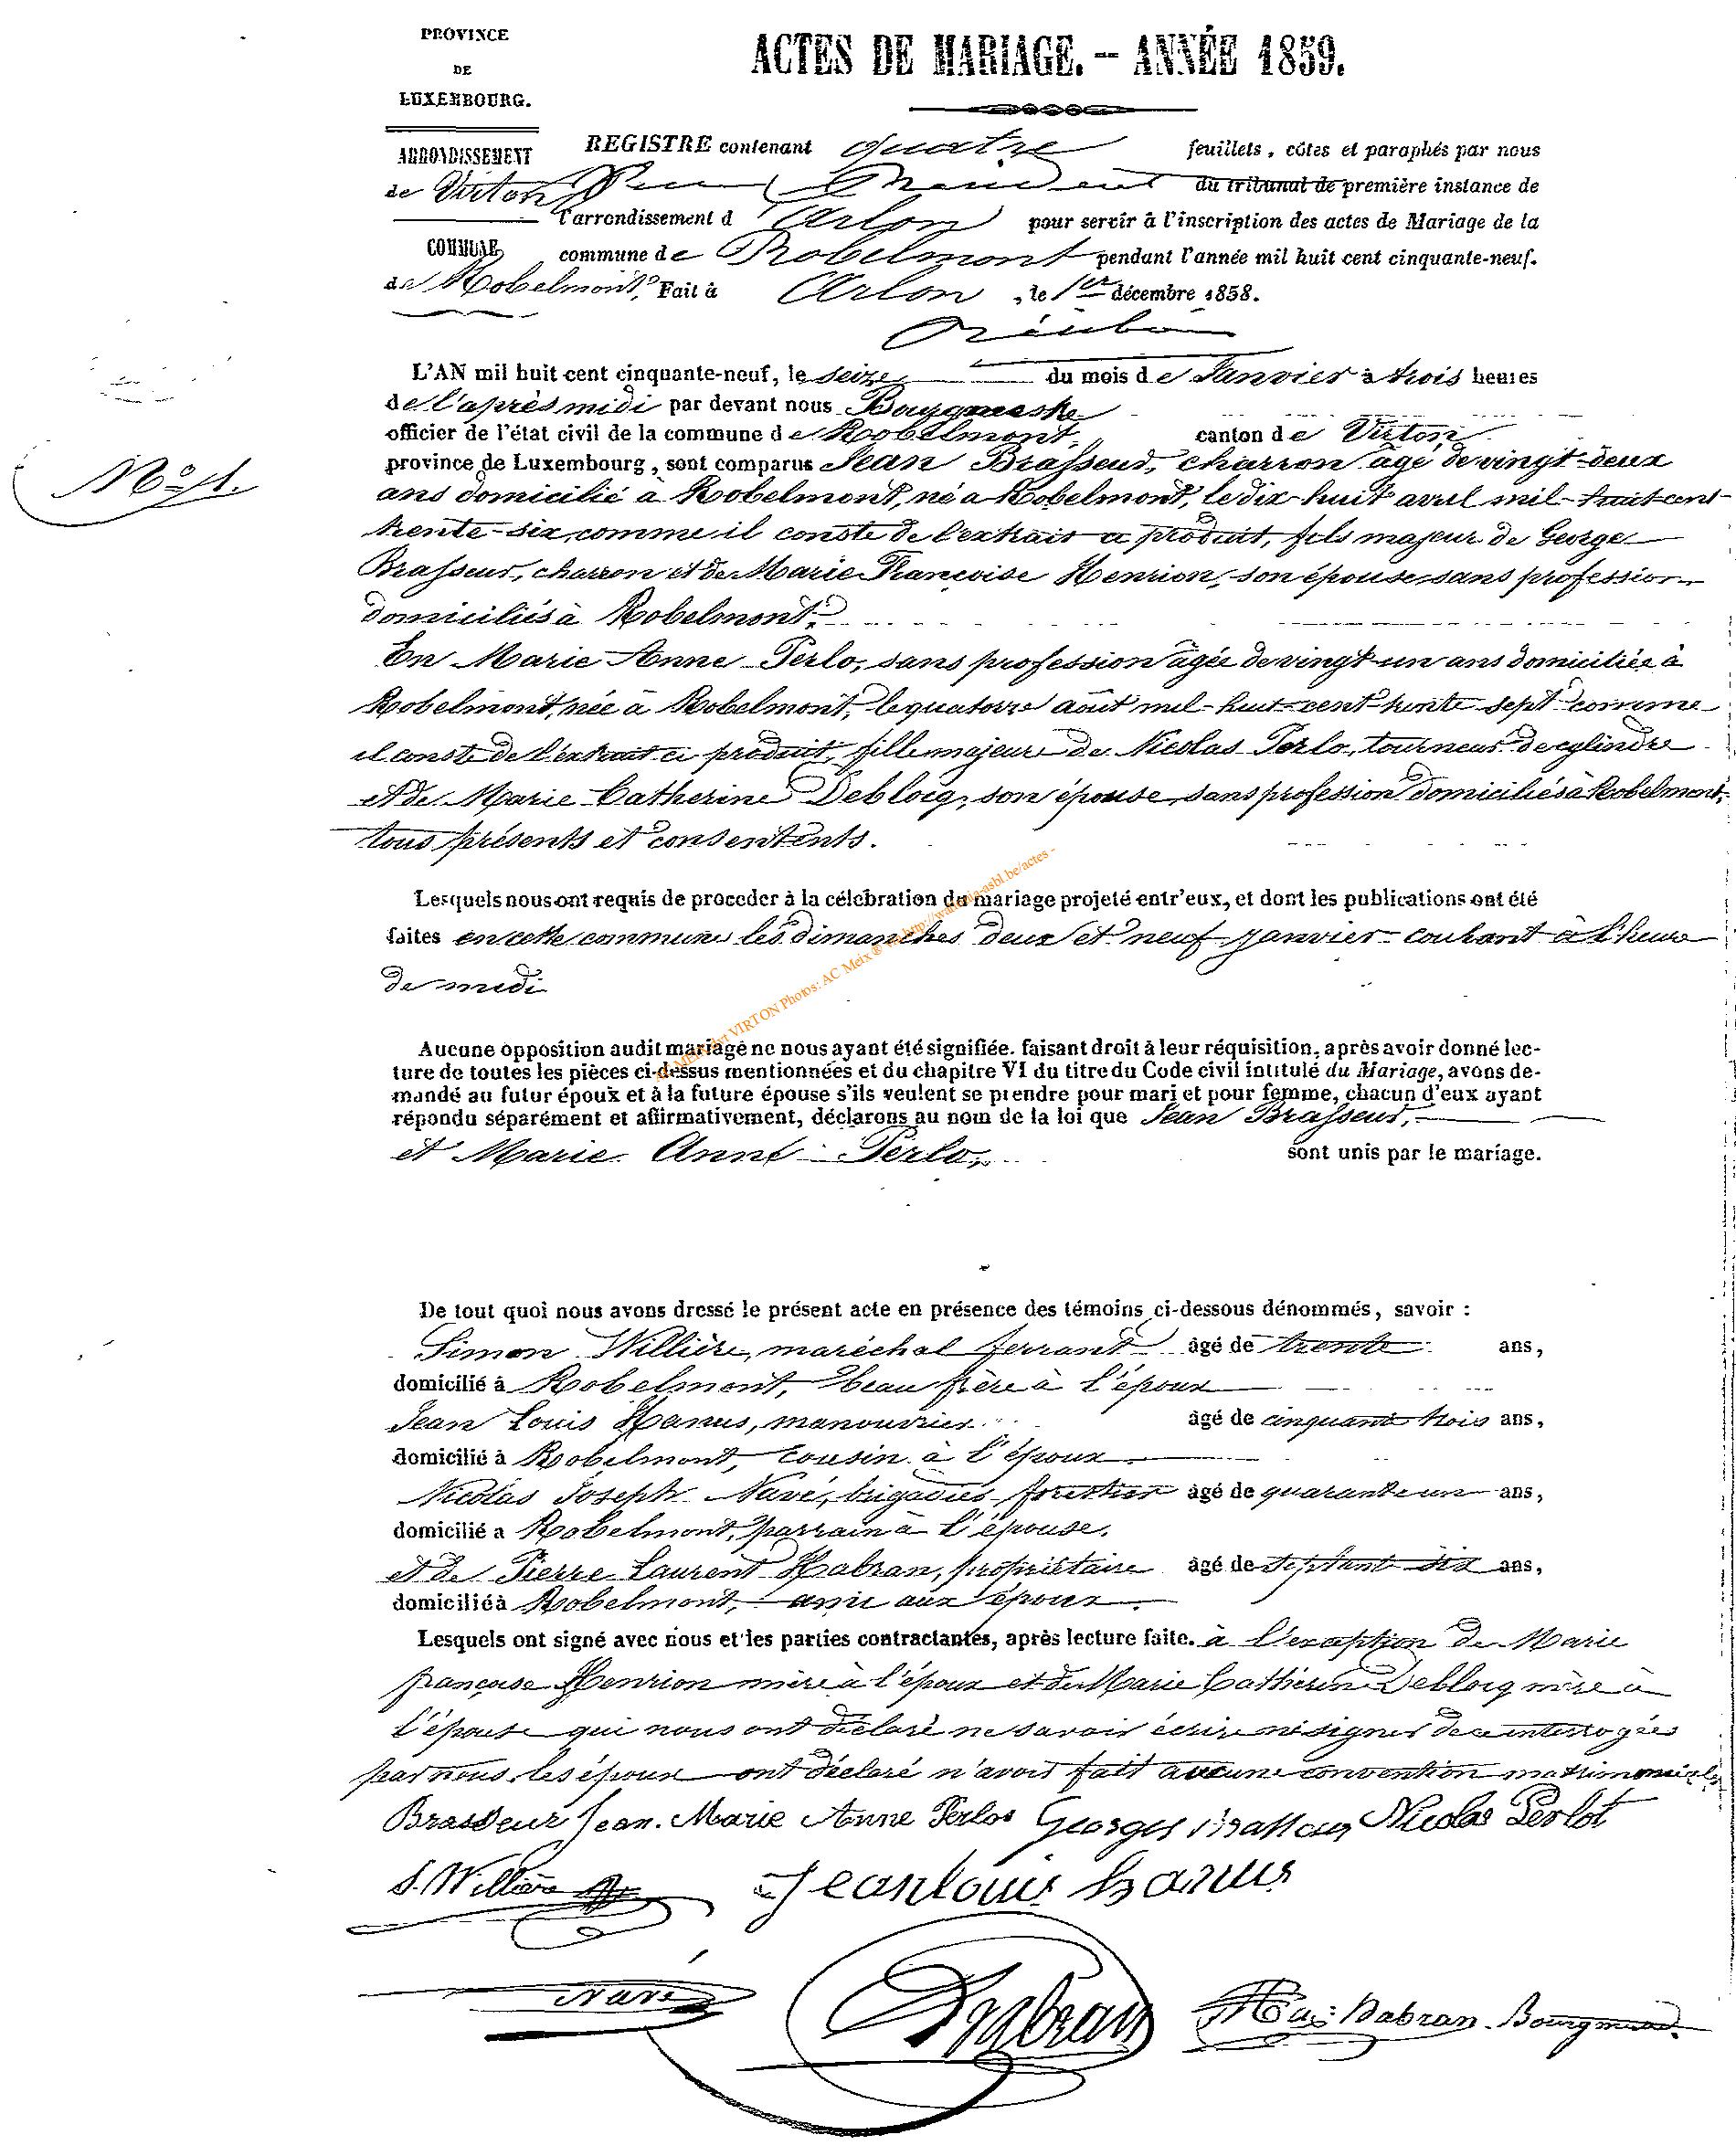 PROVINCE
DE
LUXEMBOURG.
ACTES DE MARIAGE. — ANNÉE 1859.
ARRONDISSEMENT
de Virton
COMMUNE
de Robelmont,
REGISTRE contenant quatre feuillets, côtés et paraphés par nous
du tribunal de première instance de
l'arrondissement d'Arlon pour servir à l'inscription des actes de Mariage de la
commune de Robelmont pendant l'année mil huit cent cinquante-neuf.
Fait à Arlon, le 1er décembre 1858.
N° 1.
L'AN mil huit cent cinquante-neuf, le seize du mois de Janvier à trois heures
de l'après midi par devant nous Bourgmestre
officier de l'état civil de la commune de Robelmont, canton de Virton
province de Luxembourg, sont comparus Jean Brasseur, charron âgé de vingt-deux
ans domicilié à Robelmont, né a Robelmont, le dix-huit avril mil-huit cent
trente-six, comme il conste de l'extrait ci produit, fils majeur de George
Brasseur, charron et de Marie Françoise Henrion, son épouse, sans profession
domiciliés à Robelmont;
En Marie Anne Perlo, sans profession âgée de vingt-un ans domiciliée à
Robelmont, née à Robelmont, le quatorze août mil-huit-cent trente sept comme
il conste de l'extrait ci produit, fille majeure de Nicolas Perlo, tourneur de cylindre
et de Marie Catherine Deblocq, son épouse, sans profession domiciliés à Robelmont,
tous présents et consentents.
Lesquels nous ont requis de proceder à la célébration du mariage projeté entr'eux, et dont les publications ont été
faites en cette commune les dimanches deux et neuf janvier courant à l'heure
de midi
Aucune opposition audit mariage ne nous ayant été signifiée, faisant droit à leur réquisition, après avoir donné lec-
ture de toutes les pièces ci-dessus mentionnées et du chapitre VI du titre du Code civil intitulé du Mariage, avons de-
mandé au futur époux et à la future épouse s'ils veulent se prendre pour mari et pour femme, chacun d'eux ayant
répondu séparément et affirmativement, déclarons au nom de la loi que Jean Brasseur,
et Marie Anne Perlo, sont unis par le mariage.
VIRTON Photos: AC Meix
De tout quoi nous avons dressé le présent acte en présence des témoins ci-dessous dénommés, savoir :
Simon Willière, maréchal ferrant âgé de trente ans,
domicilié à Robelmont, beau frère à l'époux
Jean Louis Hanus, manouvrier âgé de cinquante trois ans,
domicilié à Robelmont, cousin à l'époux
Nicolas Joseph Navé, brigadier forestier âgé de quarante un ans,
domicilié a Robelmont, parrain à l'épouse.
et de Pierre Laurent Habran, propriétaire âgé de septante six ans,
domicilié à Robelmont, ami aux époux.
Lesquels ont signé avec nous et les parties contractantes, après lecture faite. à l'exception de Marie
françoise Henrion mère à l'époux et de Marie Cathérine Deblocq mère à
l'épouse qui nous ont déclaré ne savoir écrire ni signer de ce interrogées
par nous, les époux ont déclaré n'avoir fait aucune convention matrimoniale
Brasseur Jean. Marie Anne Perlot Georges Brasseur Nicolas Perlot
S. Willière Jean Louis hanus
Navé Habran Habran. Bourgmest.